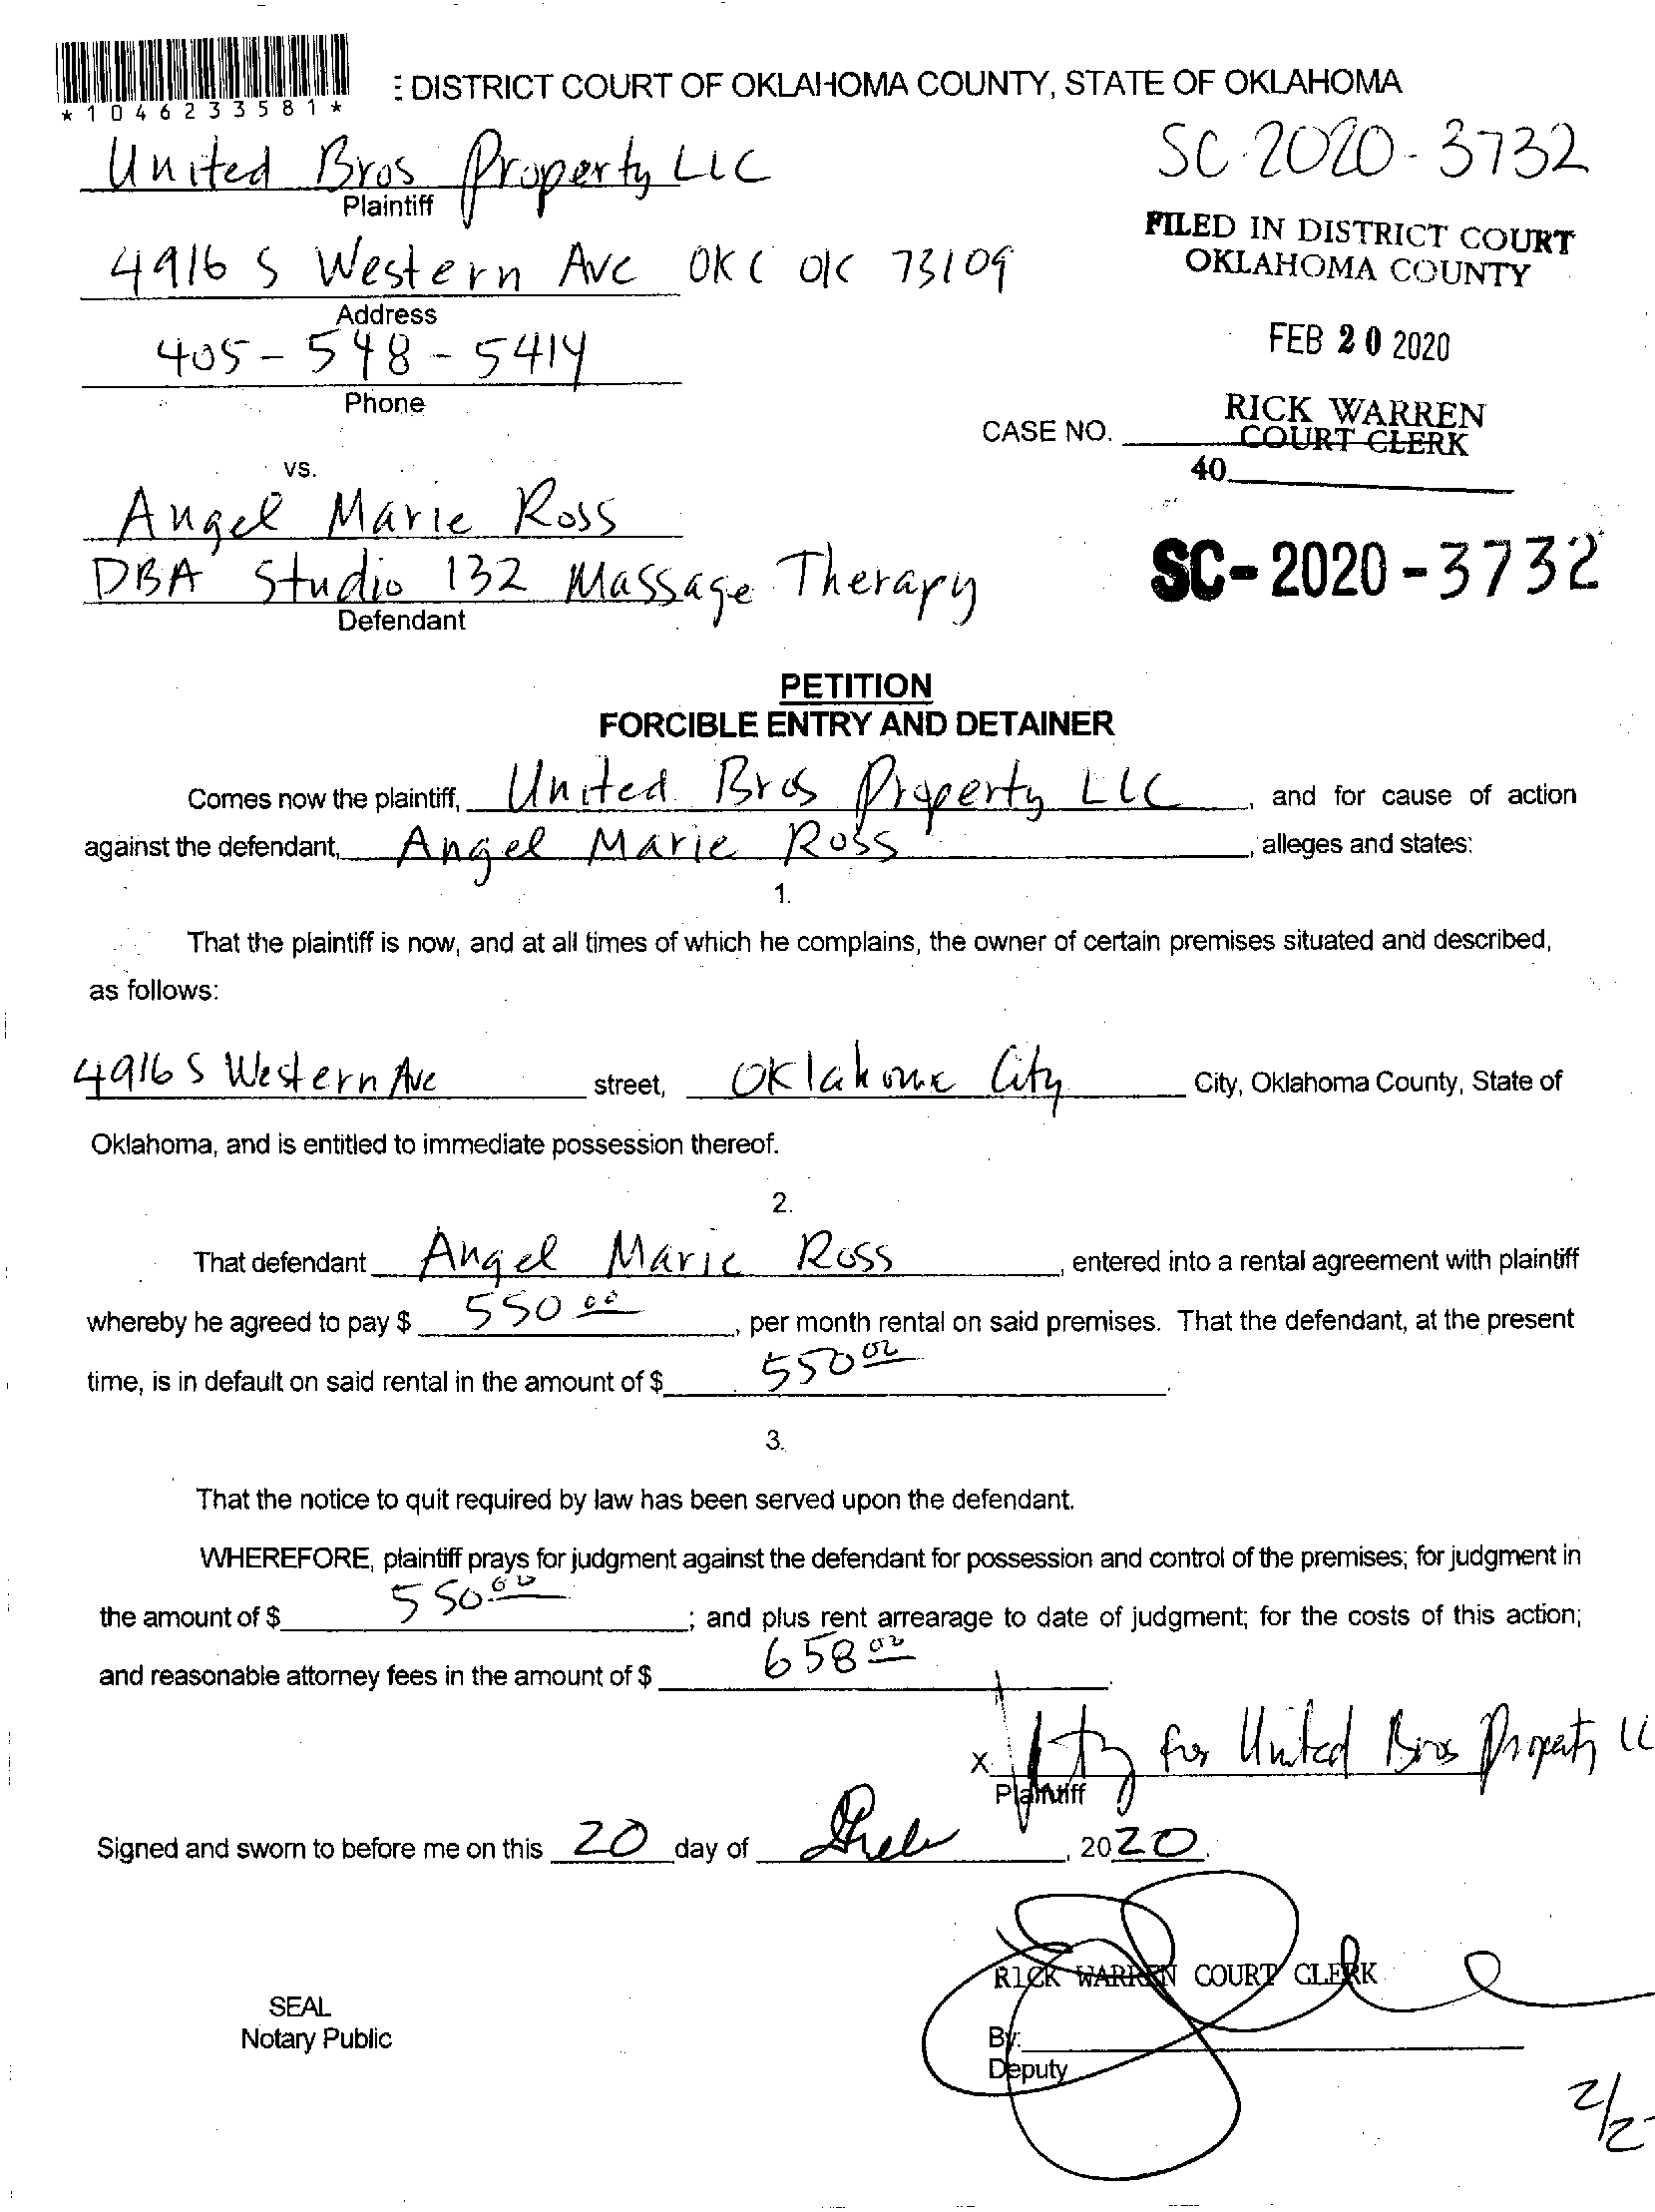 *1046233581*
: DISTRICT COURT OF OKLAHOMA COUNTY, STATE OF OKLAHOMA
United Bros Property LLC
Plaintiff
SC-2020-3732
FILED IN DISTRICT COURT
OKLAHOMA COUNTY
4916 S Western Ave OKC OK 73109
Address
FEB 20 2020
405-548-5414
Phone
RICK WARREN
COURT CLERK
CASE NO.
40
vs.
Angel Marie Ross
DBA Studio 132 Massage Therapy
Defendant
SC-2020-3732
PETITION
FORCIBLE ENTRY AND DETAINER
Comes now the plaintiff, United Bros Property LLC, and for cause of action
against the defendant, Angel Marie Ross, alleges and states:
1.
That the plaintiff is now, and at all times of which he complains, the owner of certain premises situated and described,
as follows:
4916 S Western Ave street, Oklahoma City City, Oklahoma County, State of
Oklahoma, and is entitled to immediate possession thereof.
2.
That defendant Angel Marie Ross, entered into a rental agreement with plaintiff
whereby he agreed to pay $ 550.00, per month rental on said premises. That the defendant, at the present
time, is in default on said rental in the amount of $ 550.00.
3.
That the notice to quit required by law has been served upon the defendant.
WHEREFORE, plaintiff prays for judgment against the defendant for possession and control of the premises; for judgment in
the amount of $ 550.00; and plus rent arrearage to date of judgment; for the costs of this action;
and reasonable attorney fees in the amount of $ 658.00.
x for United Bros Property LL
Plaintiff
Signed and sworn to before me on this 20 day of 2020.
RICK WARREN COURT CLERK
SEAL
Notary Public
By:
Deputy
2/2